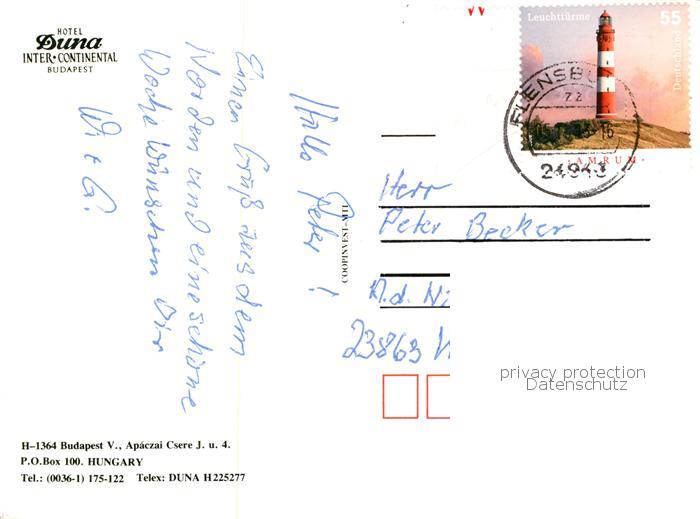 HOTEL
Duna
INTER•CONTINENTAL
BUDAPEST
Hallo Peter!
Einen Gruß aus dem
Norden und eine schöne
Woche wünschen Dir
COOPINVEST-MTI
Leuchttürme 55
Deutschland
AMRUM
FLENSBU
24943
Herr
Peter Becker
A.d. Ni
23863
privacy protection
Datenschutz
H–1364 Budapest V., Apáczai Csere J. u. 4.
P.O.Box 100. HUNGARY
Tel.: (0036-1) 175-122 Telex: DUNA H 225277